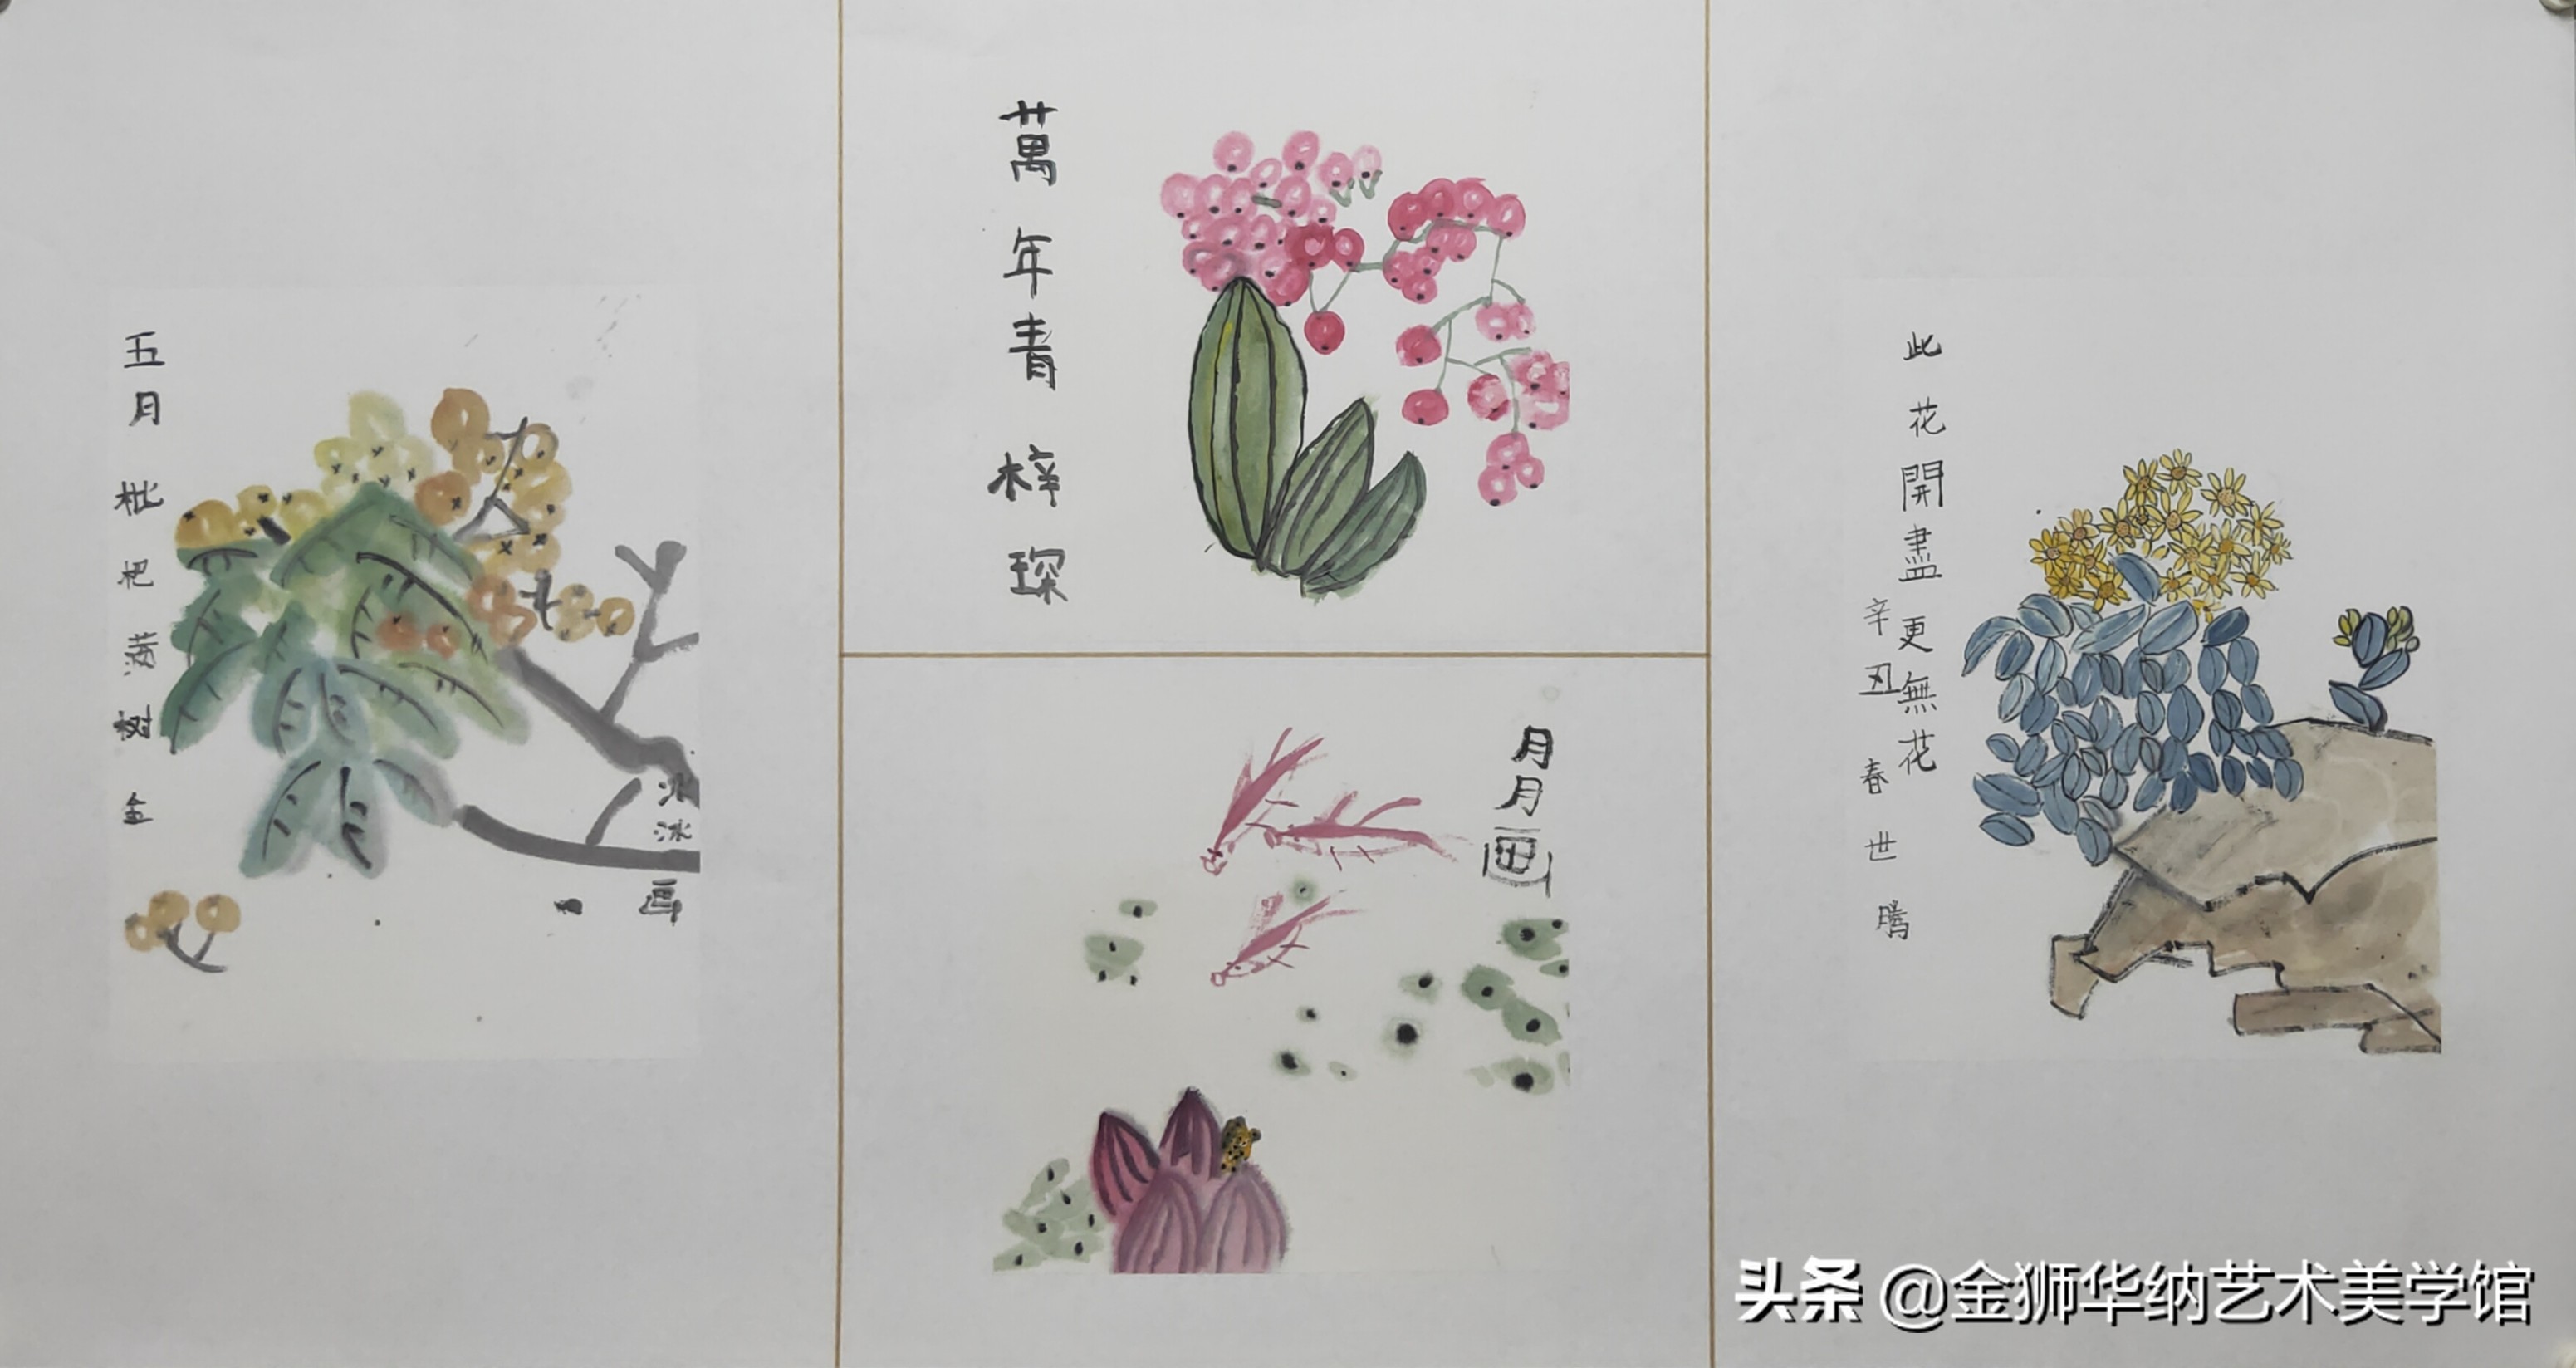 五月枇杷满树金
冰冰画
萬年青 梓琛
月月画
此花開盡更無花
辛丑春世騰
头条 @金狮华纳艺术美学馆